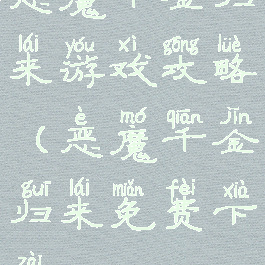 魔千金归
lái yóu xì gōng lüè
来游戏攻略
è mó qiān jīn
（恶魔千金
guī lái miǎn fèi xià
归来免费下
zài